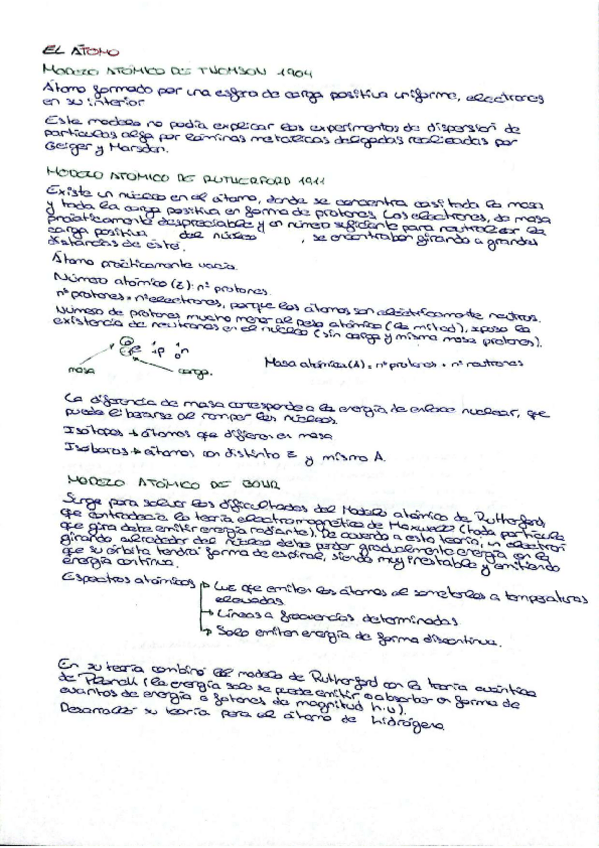 EL ÁTOMO
MODELO ATÓMICO DE THOMSON 1904
Átomo formado por una esfera de carga positiva uniforme, electrones
en su interior
Este modelo no podía explicar los experimentos de dispersión de
partículas alfa por láminas metálicas delgadas realizadas por
Geiger y Marsden.
MODELO ATÓMICO DE RUTHERFORD 1911
Existe un núcleo en el átomo, donde se concentra casi toda la masa
y toda la carga positiva en forma de protones. Los electrones, de masa
prácticamente despreciable y en número suficiente para neutralizar la
carga positiva del núcleo, se encontraban girando a grandes
distancias de éste.
Átomo prácticamente vacío.
Número atómico (Z): nº protones.
nº protones = nº electrones, porque los átomos son eléctricamente neutros.
Número de protones mucho menor al peso atómico (la mitad), supuso la
existencia de neutrones en el núcleo (sin carga y misma masa protones).
e p n
masa carga.
Masa atómica (A) = nº protones + nº neutrones
La diferencia de masa corresponde a la energía de enlace nuclear, que
puede liberarse al romper los núcleos.
Isótopos → átomos que difieren en masa
Isobaros → átomos con distinto Z y mismo A.
MODELO ATÓMICO DE BOHR
Surge para salvar las dificultades del Modelo atómico de Rutherford,
que contradecía la teoría electromagnética de Maxwell (toda partícula
que gira debe emitir energía radiante). De acuerdo a esta teoría, un electrón
girando alrededor del núcleo debe perder gradualmente energía en la
que su órbita tendrá forma de espiral, siendo muy inestable y emitiendo
energía continua.
Espectros atómicos → Luz que emiten los átomos al someterlos a temperaturas
elevadas
→ Líneas a frecuencias determinadas
→ Solo emiten energía de forma discontinua.
En su teoría combinó el modelo de Rutherford con la teoría cuántica
de Planck (la energía solo se puede emitir o absorber en forma de
cuantos de energía o fotones de magnitud h·υ).
Desarrolló su teoría para el átomo de hidrógeno.